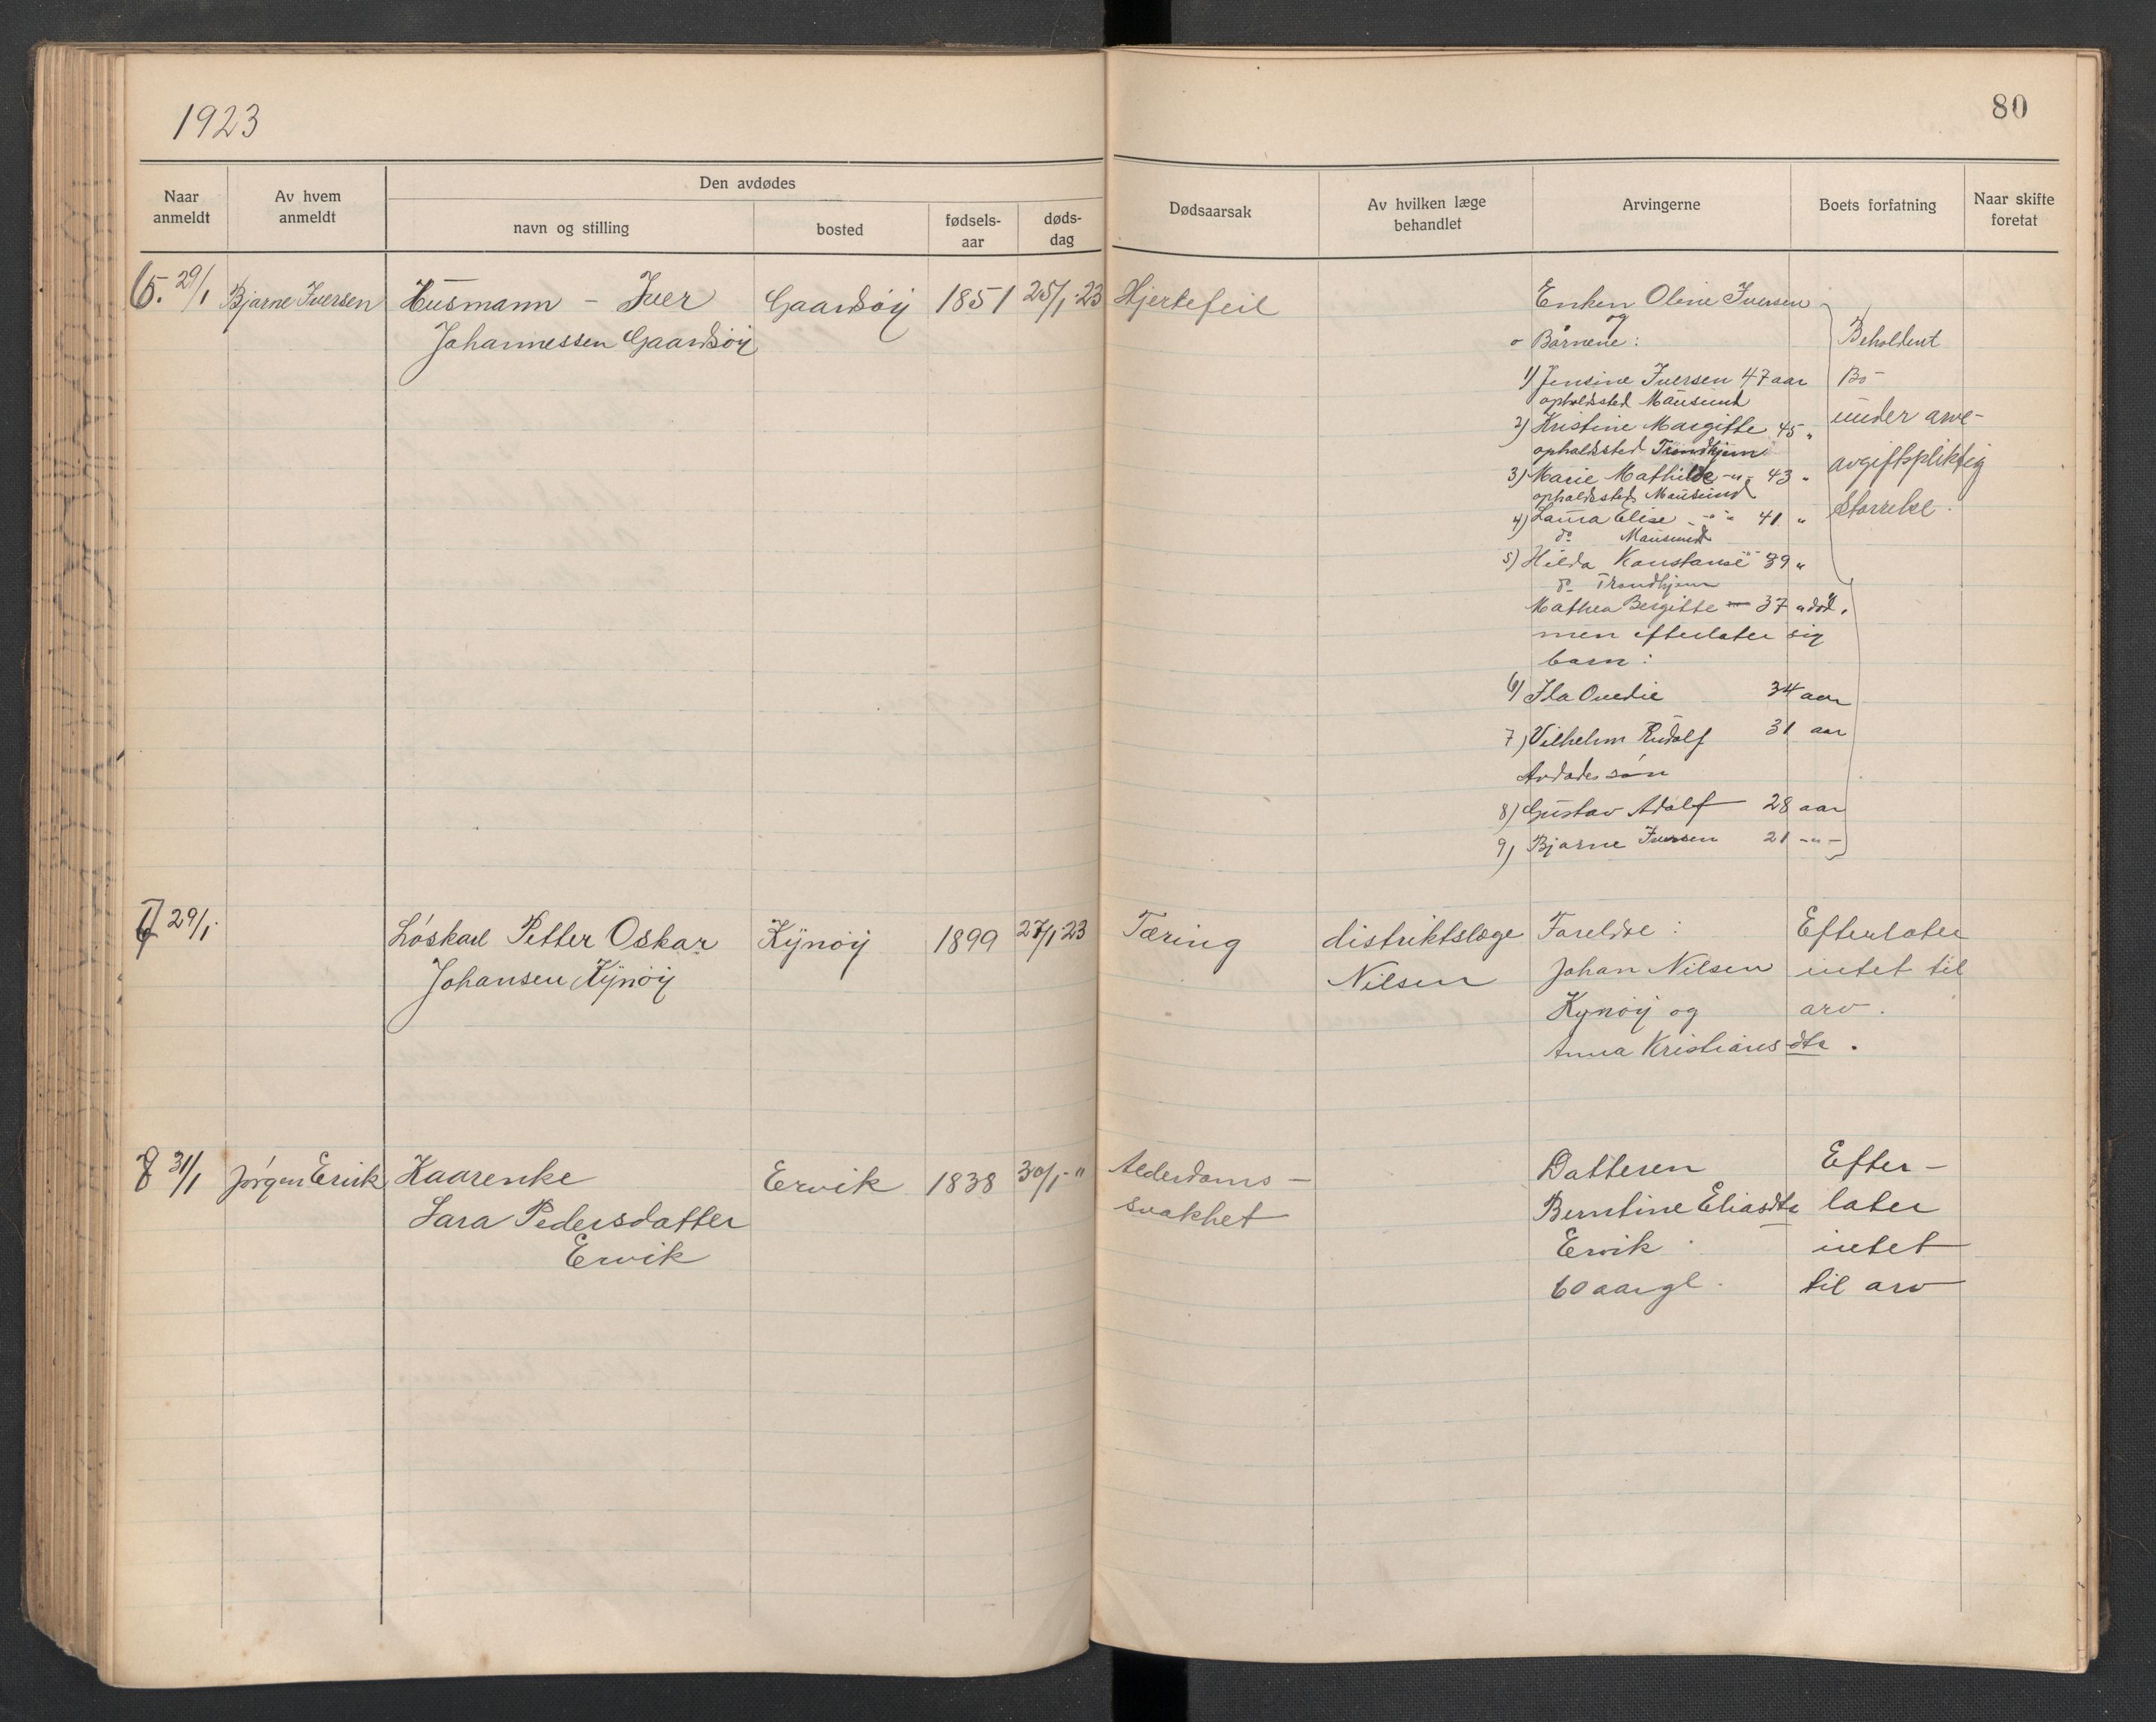 1923
80
Naar anmeldt
Av hvem anmeldt
Den avdødes
navn og stilling
bosted
fødsels-aar
døds-dag
Dødsaarsak
Av hvilken læge behandlet
Arvingerne
Boets forfatning
Naar skifte foretat
29/1 Bjarne Iversen Husmann - Iver Gaardsøy 1851 25/1-23 Hjertefeil Enken Oline Iversen
Johannessen Gaardsøy
og
Børnene: Beholdent
1) Jensine Iversen 47 aar Bo
opholdssted Mausund
2) Kristine Margitte 45 " under arve-
opholdssted Trondhjem
3) Marie Mathilde -"- 43 " avgiftspliktig
opholdssted Mausund
4) Laura Elise -"- 41 " størrelse.
do Mausund
5) Hilda Konstanse " 39 "
do Trondhjem
Mathea Bergitte 37 " død,
men efterlater sig
barn:
6) Ovedie 34 aar
7) Vilhelm Rudolf 31 aar
Avdødes søn
8) Gustav Adolf 28 aar
9) Bjarne Iversen 21 -"-
29/1. Løskarl Petter Oskar Kynøy 1899 27/1-23 Tæring distriktslæge Foreldre: Efterlater
Johansen Kynøy Nilsen Johan Nilsen intet til
Kynøy og arv.
Anna Kristiansdtr.
31/1 Jørgen Ervik Kaarenke Ervik 1838 30/1-" Alderdoms- Datteren Efter-
Sara Pedersdatter svakhet Berntine Eliasdtr later
Ervik Ervik intet
60 aar gl. til arv